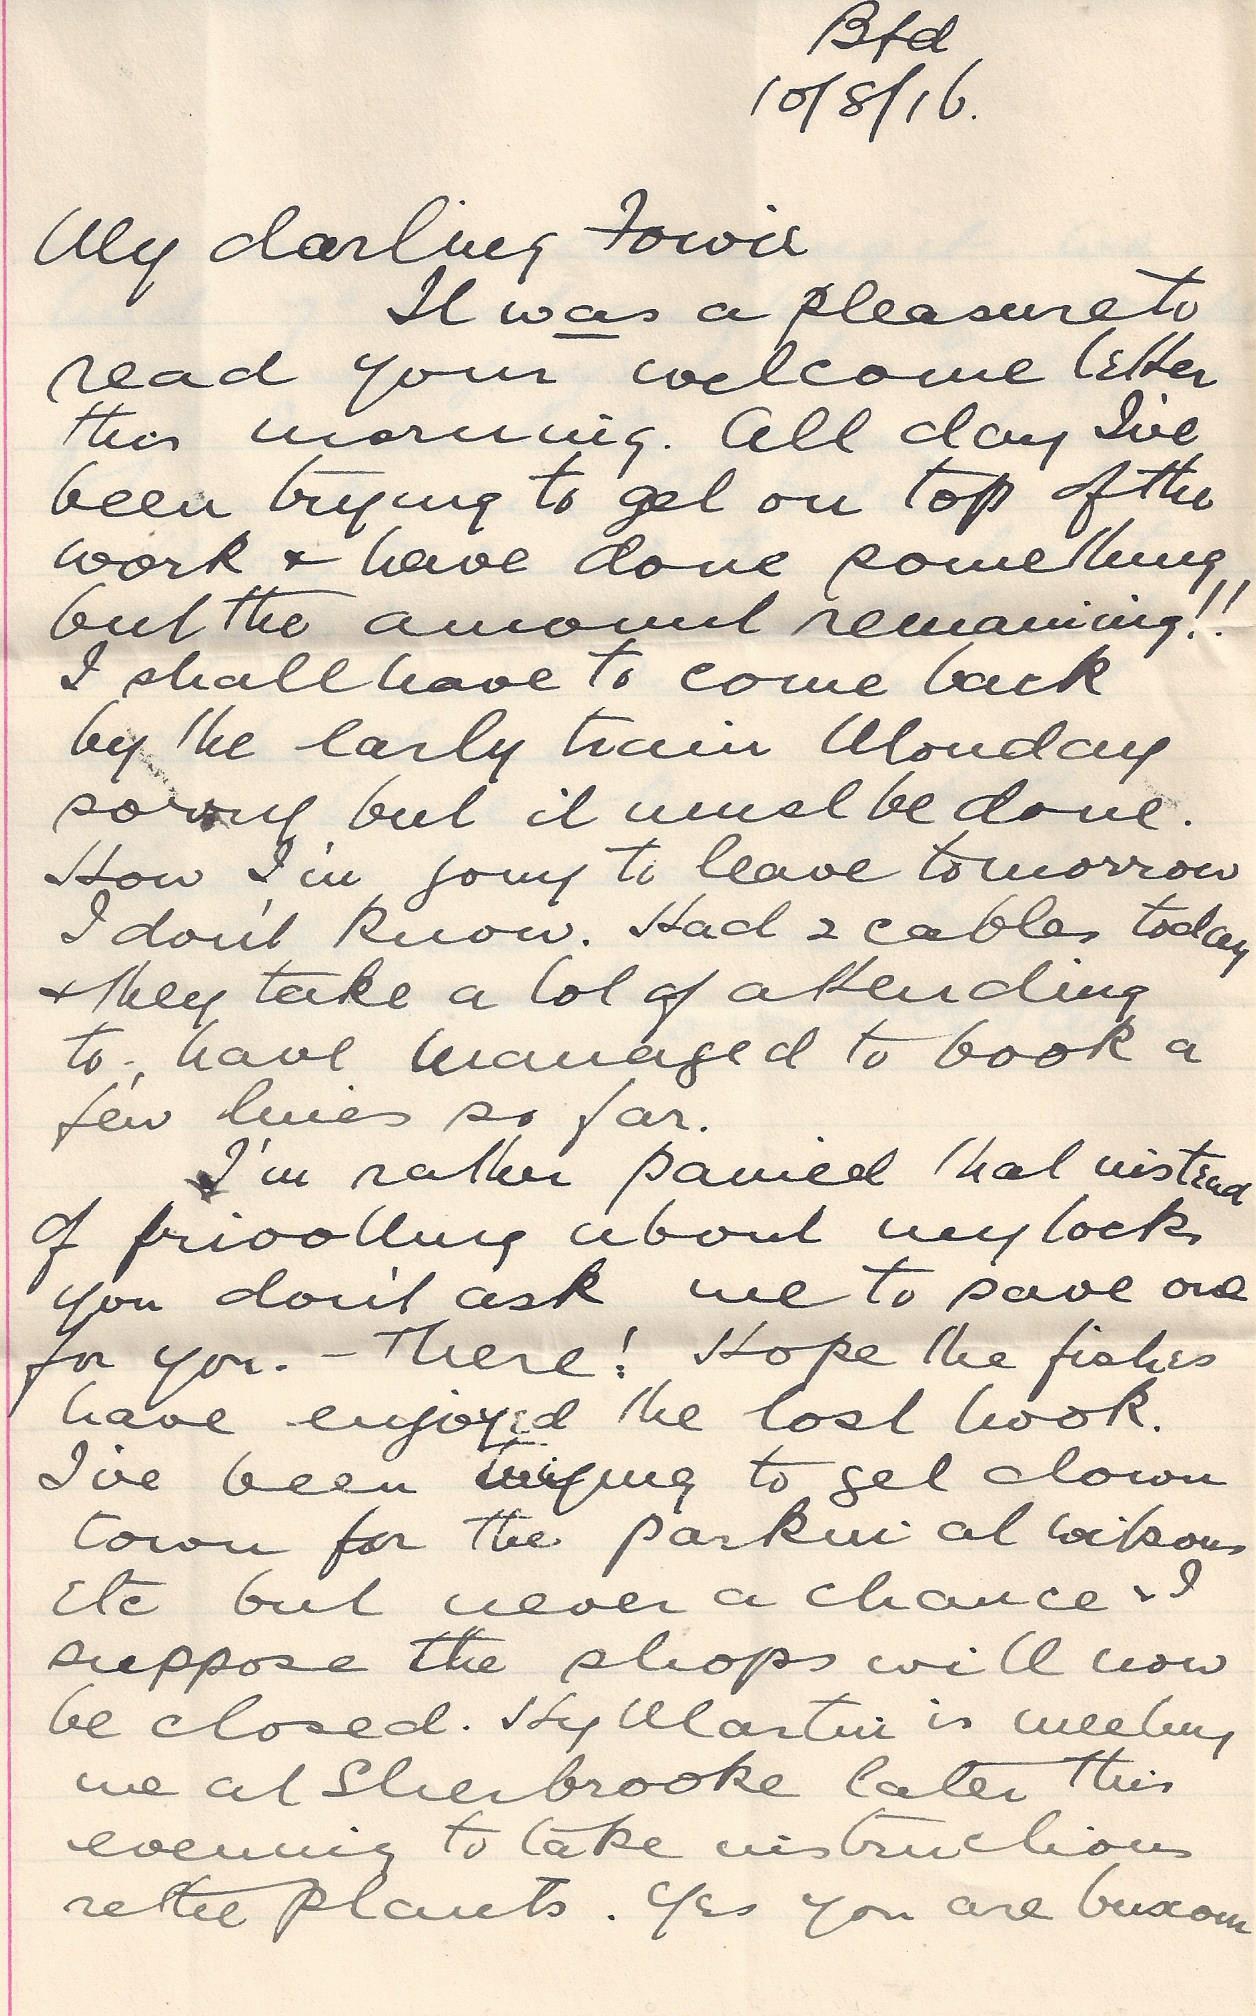 Bfd
10/8/16.
My darling Fowie
It was a pleasure to
read your welcome letter
this morning. All day I've
been trying to get on top of the
work & have done something
but the amount remaining!!
I shall have to come back
by the early train Monday
sorry but it must be done.
How I'm going to leave tomorrow
I don't know. Had 2 cables today
& they take a lot of attending
to, have managed to book a
few lines so far.
I'm rather pained that instead
of frivolling about my locks
you don't ask me to save one
for you. - There! Hope the fishes
have enjoyed the lost hook.
I've been trying to get down
town for the parkin at
etc but never a chance & I
suppose the shops will now
be closed. Hy Martin is meeting
me at Sherbrooke later this
evening to take instructions
re the plants. Yes you are buxom